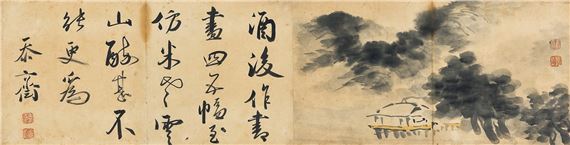 酒後作書
畫四五幅至
仿米雲
山醉甚不
能更為
齋